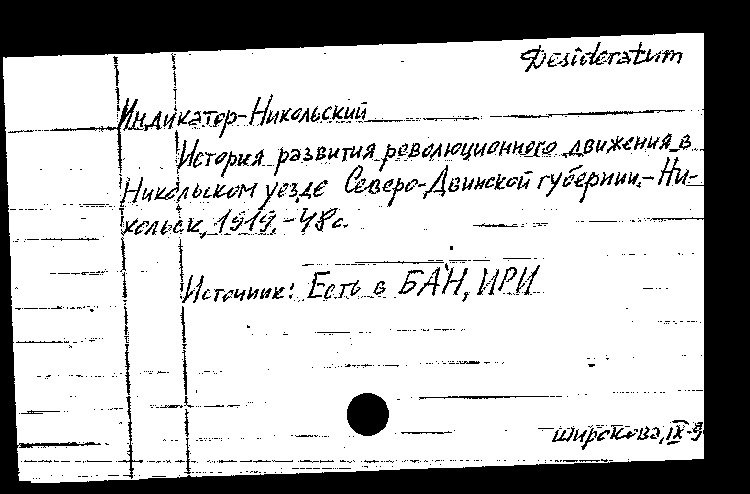 Desideratum
Индикатор-Никольский
История развития революционного движения в
Никольском уезде Северо-Двинской губернии.-Ни-
кольск, 1919.-48с.
Источник: Есть в БАН, ИРИ
Широкова, IX-9